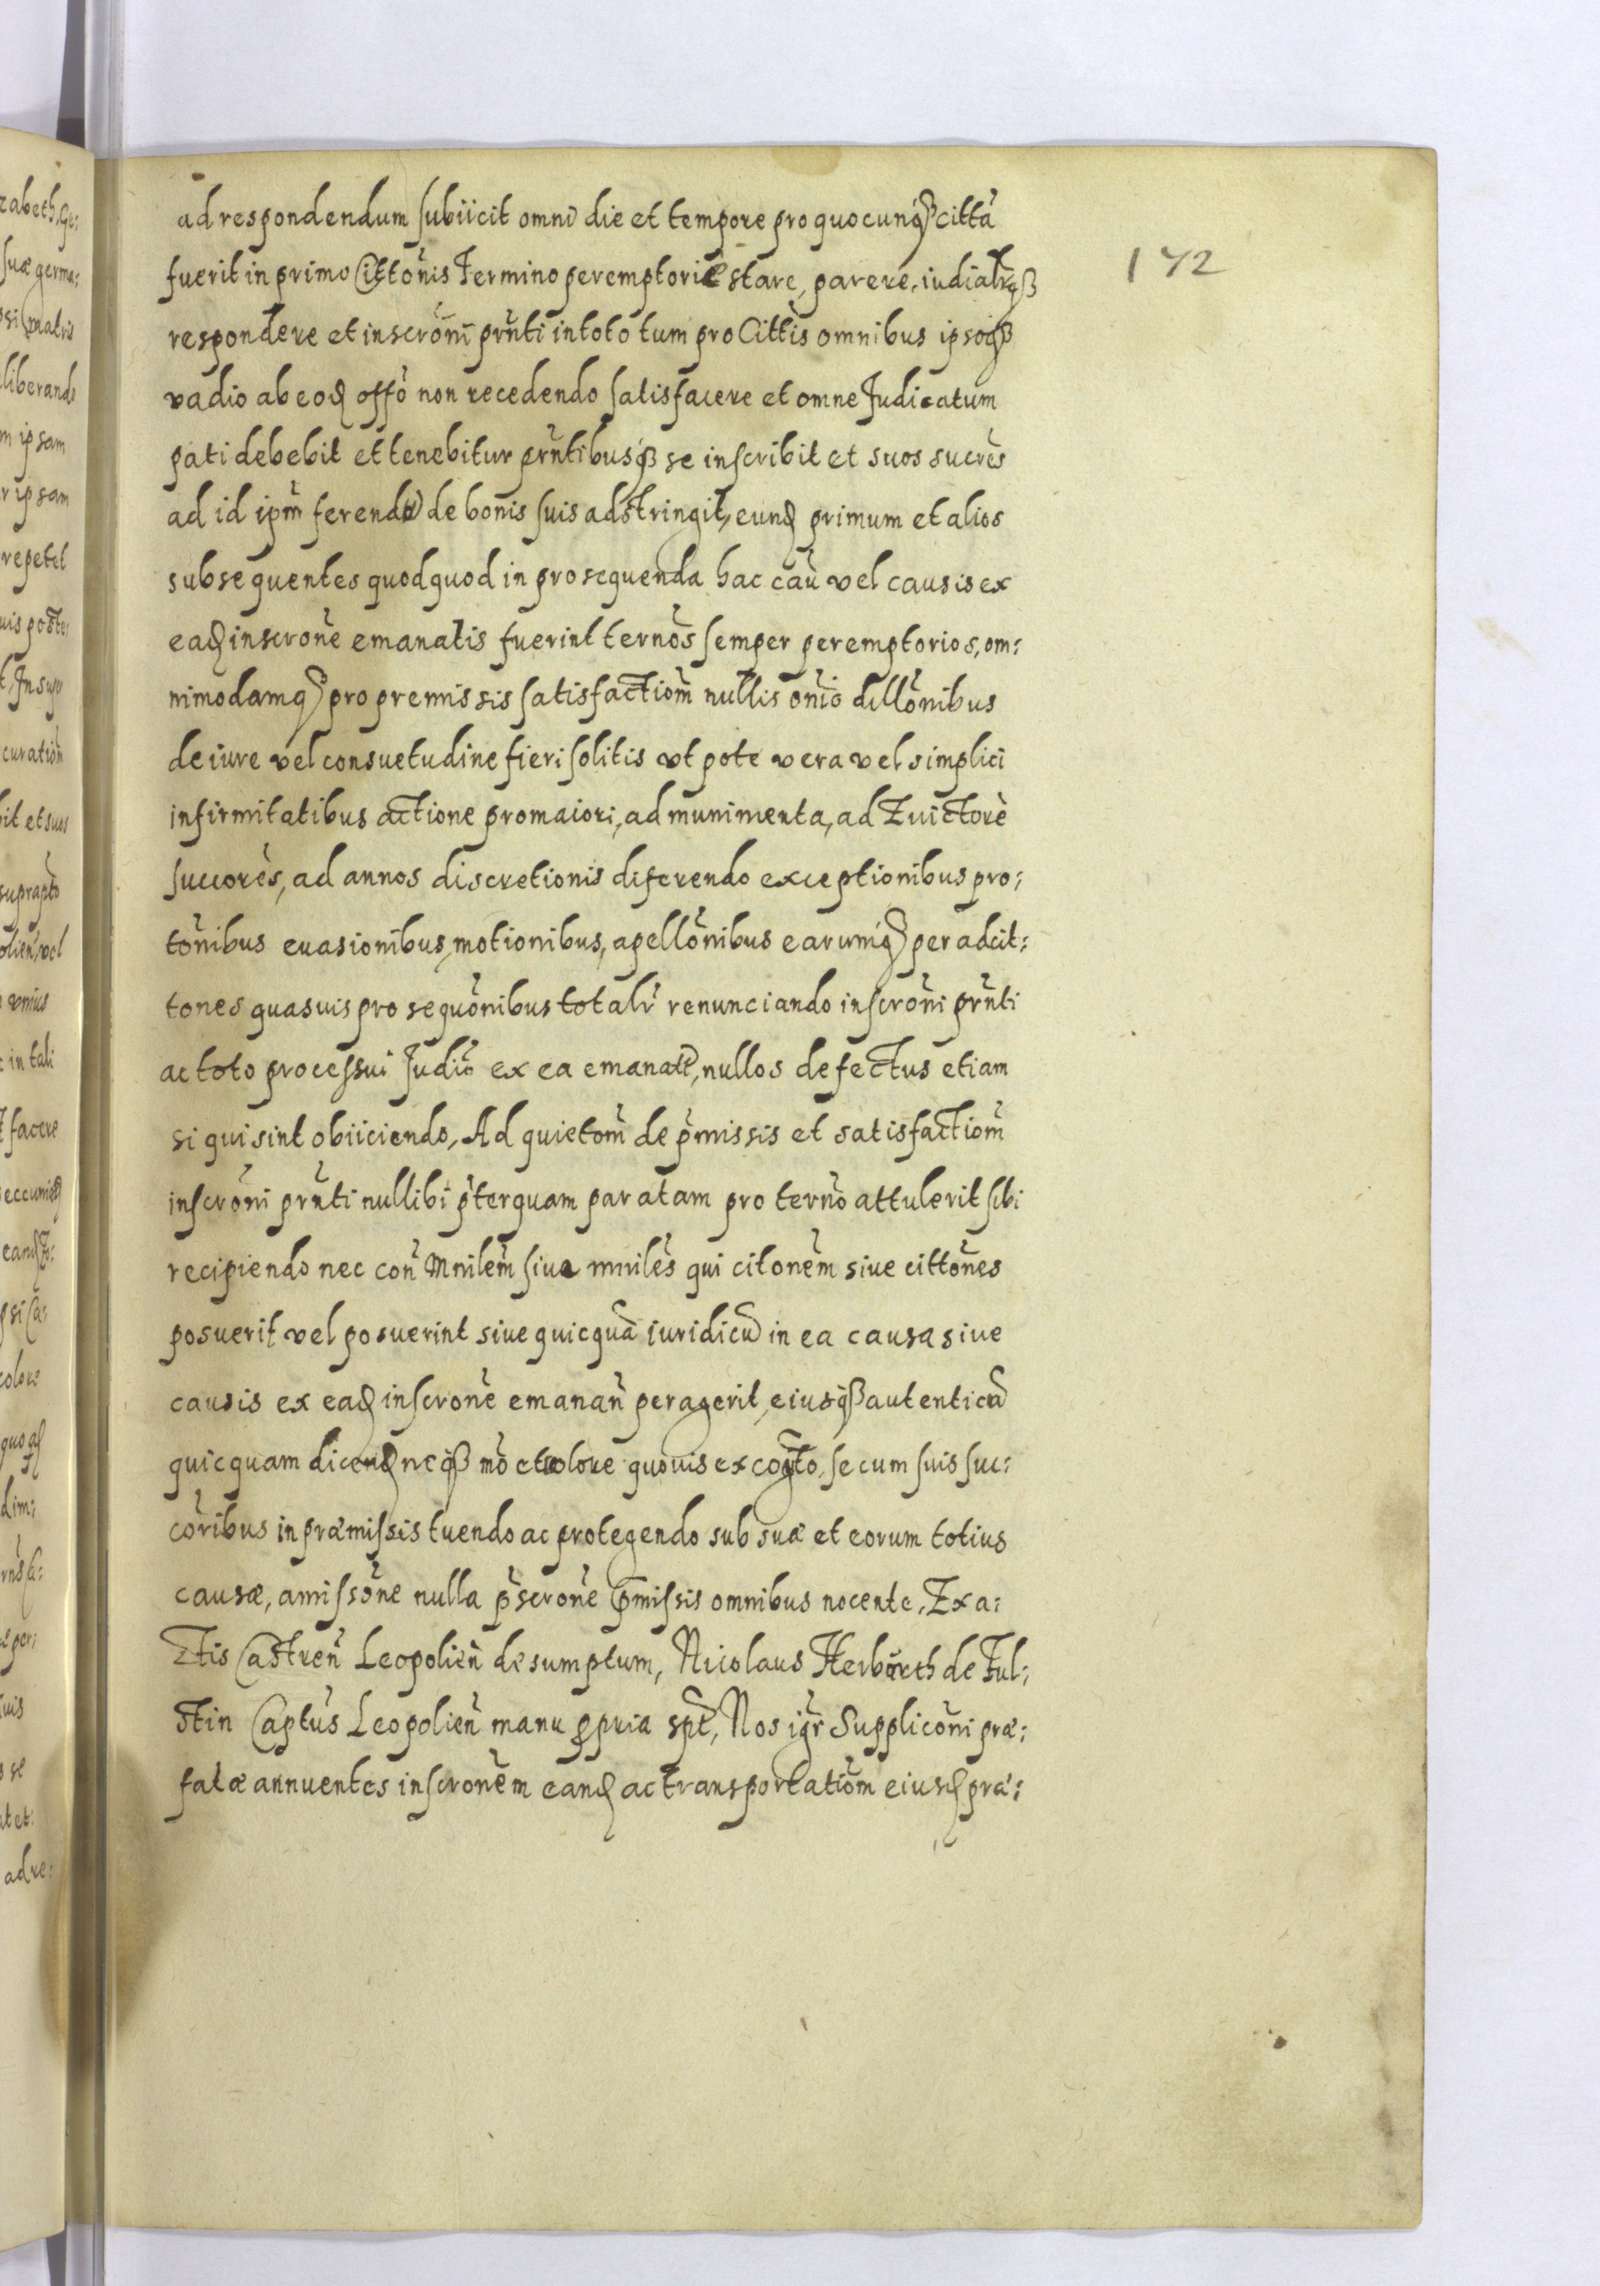 ad respondendum subiicit omni die et tempore pro quocunq̃ citta
fuerit in primo Cittõnis Termino peremptorie stare, parere, iudialr̃q̃
respondere et inscrõni prñti in toto tum pro Cittis omnibus ipsoq̃
vadio ab eod offo non recedendo satisfacere et omne Judicatum
pati debebit et tenebitur prñtibusq̃ se inscribit et suos sucres
ad id ipm̃ ferendũ de bonis suis adstringit, eund primum et alios
subsequentes quodquod in prosequenda hac cau vel causis ex
ead inscrone emanatis fuerint ternos semper peremptorios, om:
nimodamq̃ pro premissis satisfactiom̃ nullis onio dillonibus
de iure vel consuetudine fieri solitis vt pote vera vel simplici
infirmitatibus actione pro maiori, ad munimenta, ad Euictore
succores, ad annos discretionis diferendo exceptionibus pro:
tonibus euasionibus, motionibus, apellonibus earumq̃ per adcit:
tones quasuis prosequonibus totalr̃ renunciando inscroni prñti
ac toto processui Judio ex ea emanate, nullos defectus etiam
si qui sint obiiciendo, Ad quietom̃ de p̃missis et satisfactiom̃
inscroni prñti nullibi p̃terquam paratam pro terno attulerit sibi
recipiendo nec con Mnilem siue mniles qui citonem siue cittones
posuerit vel posuerint siue quicquã iuridicũ in ea causa siue
causis ex ead inscrone emanañ peragerit, eiusq̃ autenticũ
quicquam dicend neq̃ mo et colore quouis excogto, se cum suis suc:
coribus in præmissis tuendo ac protegendo sub suæ et eorum totius
causæ, amissone nulla p̃scrone p̃missis omnibus nocente, Ex a:
ctis Castreñ Leopolieñ desumptum, Nicolaus Herborth de Ful:
stin Captus Leopolieñ manu ppria spt, Nos igr̃ Supplicõni præ:
fatæ annuentes inscronem eand ac transportatiom̃ eiusd præ:
172